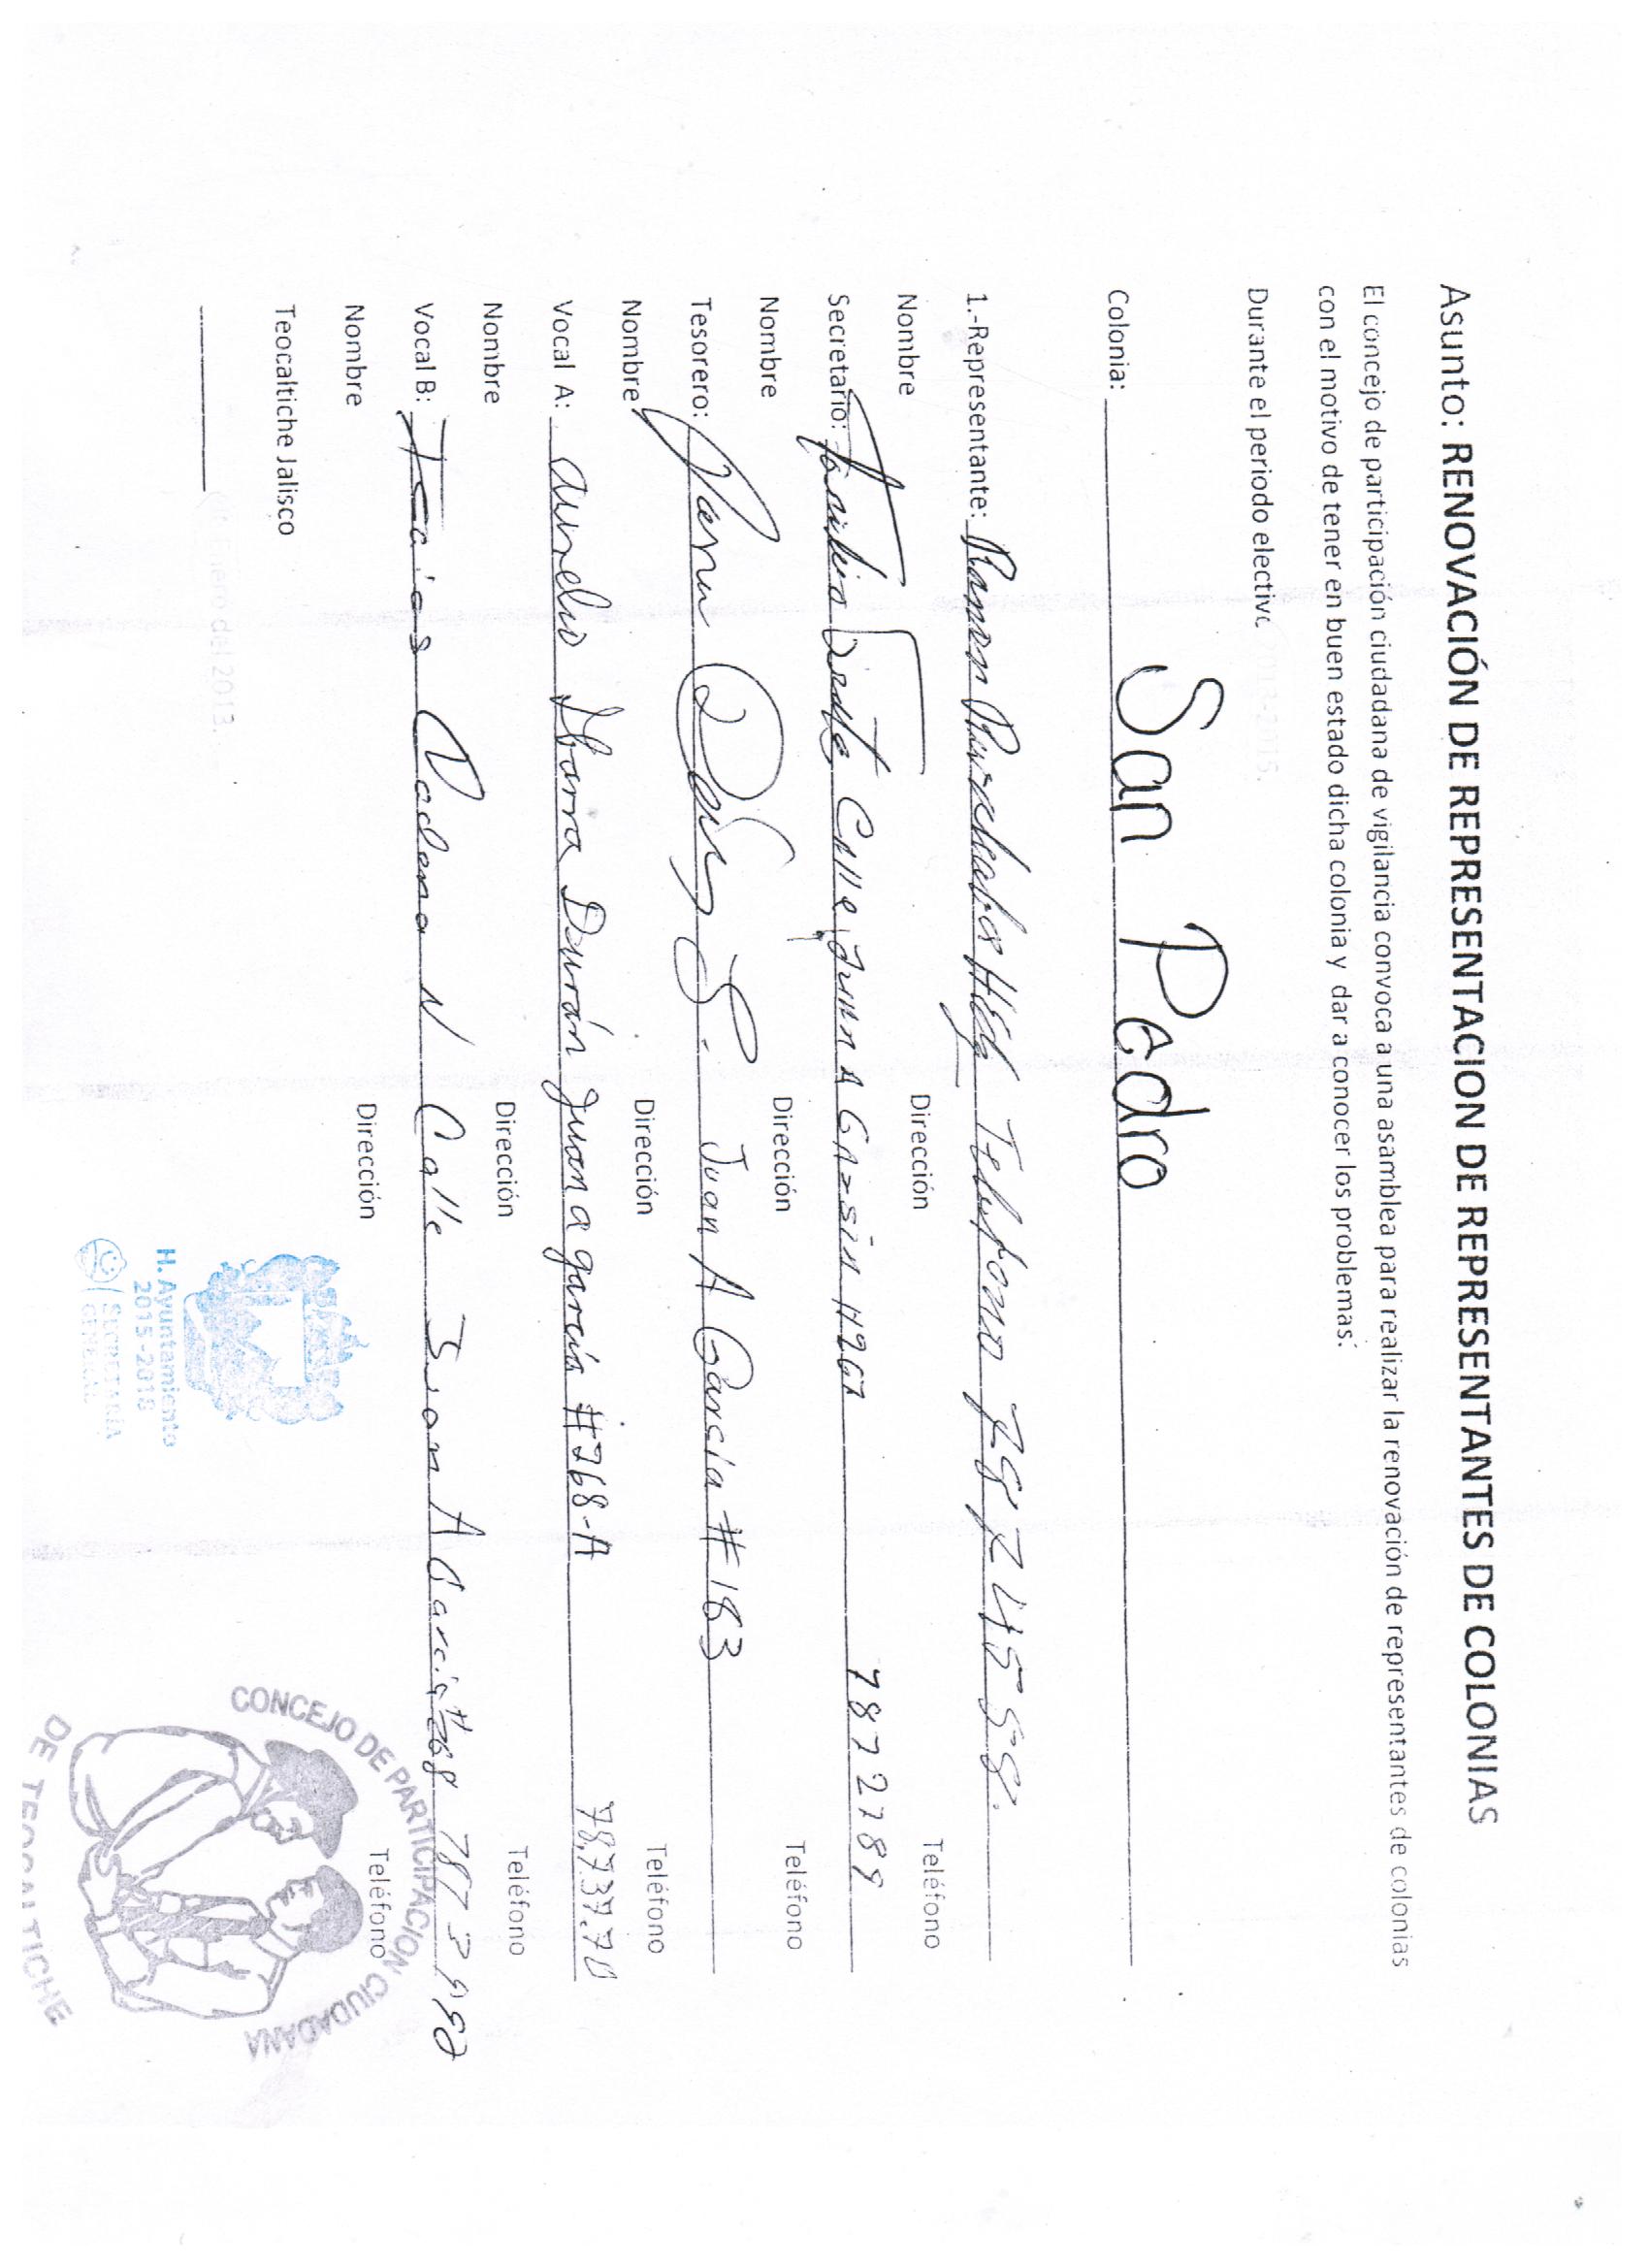 Asunto: RENOVACIÓN DE REPRESENTACION DE REPRESENTANTES DE COLONIAS
El concejo de participación ciudadana de vigilancia convoca a una asamblea para realizar la renovación de representantes de colonias
con el motivo de tener en buen estado dicha colonia y dar a conocer los problemas.
Durante el periodo electivo 2013-2015.
Colonia: San Pedro
1.-Representante: Ramon Telefono 78724558.
Nombre Dirección Teléfono
Secretario: Calle Juan A #267 7872789
Nombre Dirección Teléfono
Tesorero: Juan A García #183
Nombre Dirección Teléfono
Vocal A: Aurelio Ibarra Durán Juan a garcía #768-A 78,7,37,70
Nombre Dirección Teléfono
Vocal B: Cadena N Calle Juan A Garcia #268
Nombre Dirección Teléfono
Teocaltiche Jalisco
Enero del 2013.
H. Ayuntamiento
2015-2018
SECRETARÍA
GENERAL
CONCEJO DE PARTICIPACION CIUDADANA
DE TEOCALTICHE